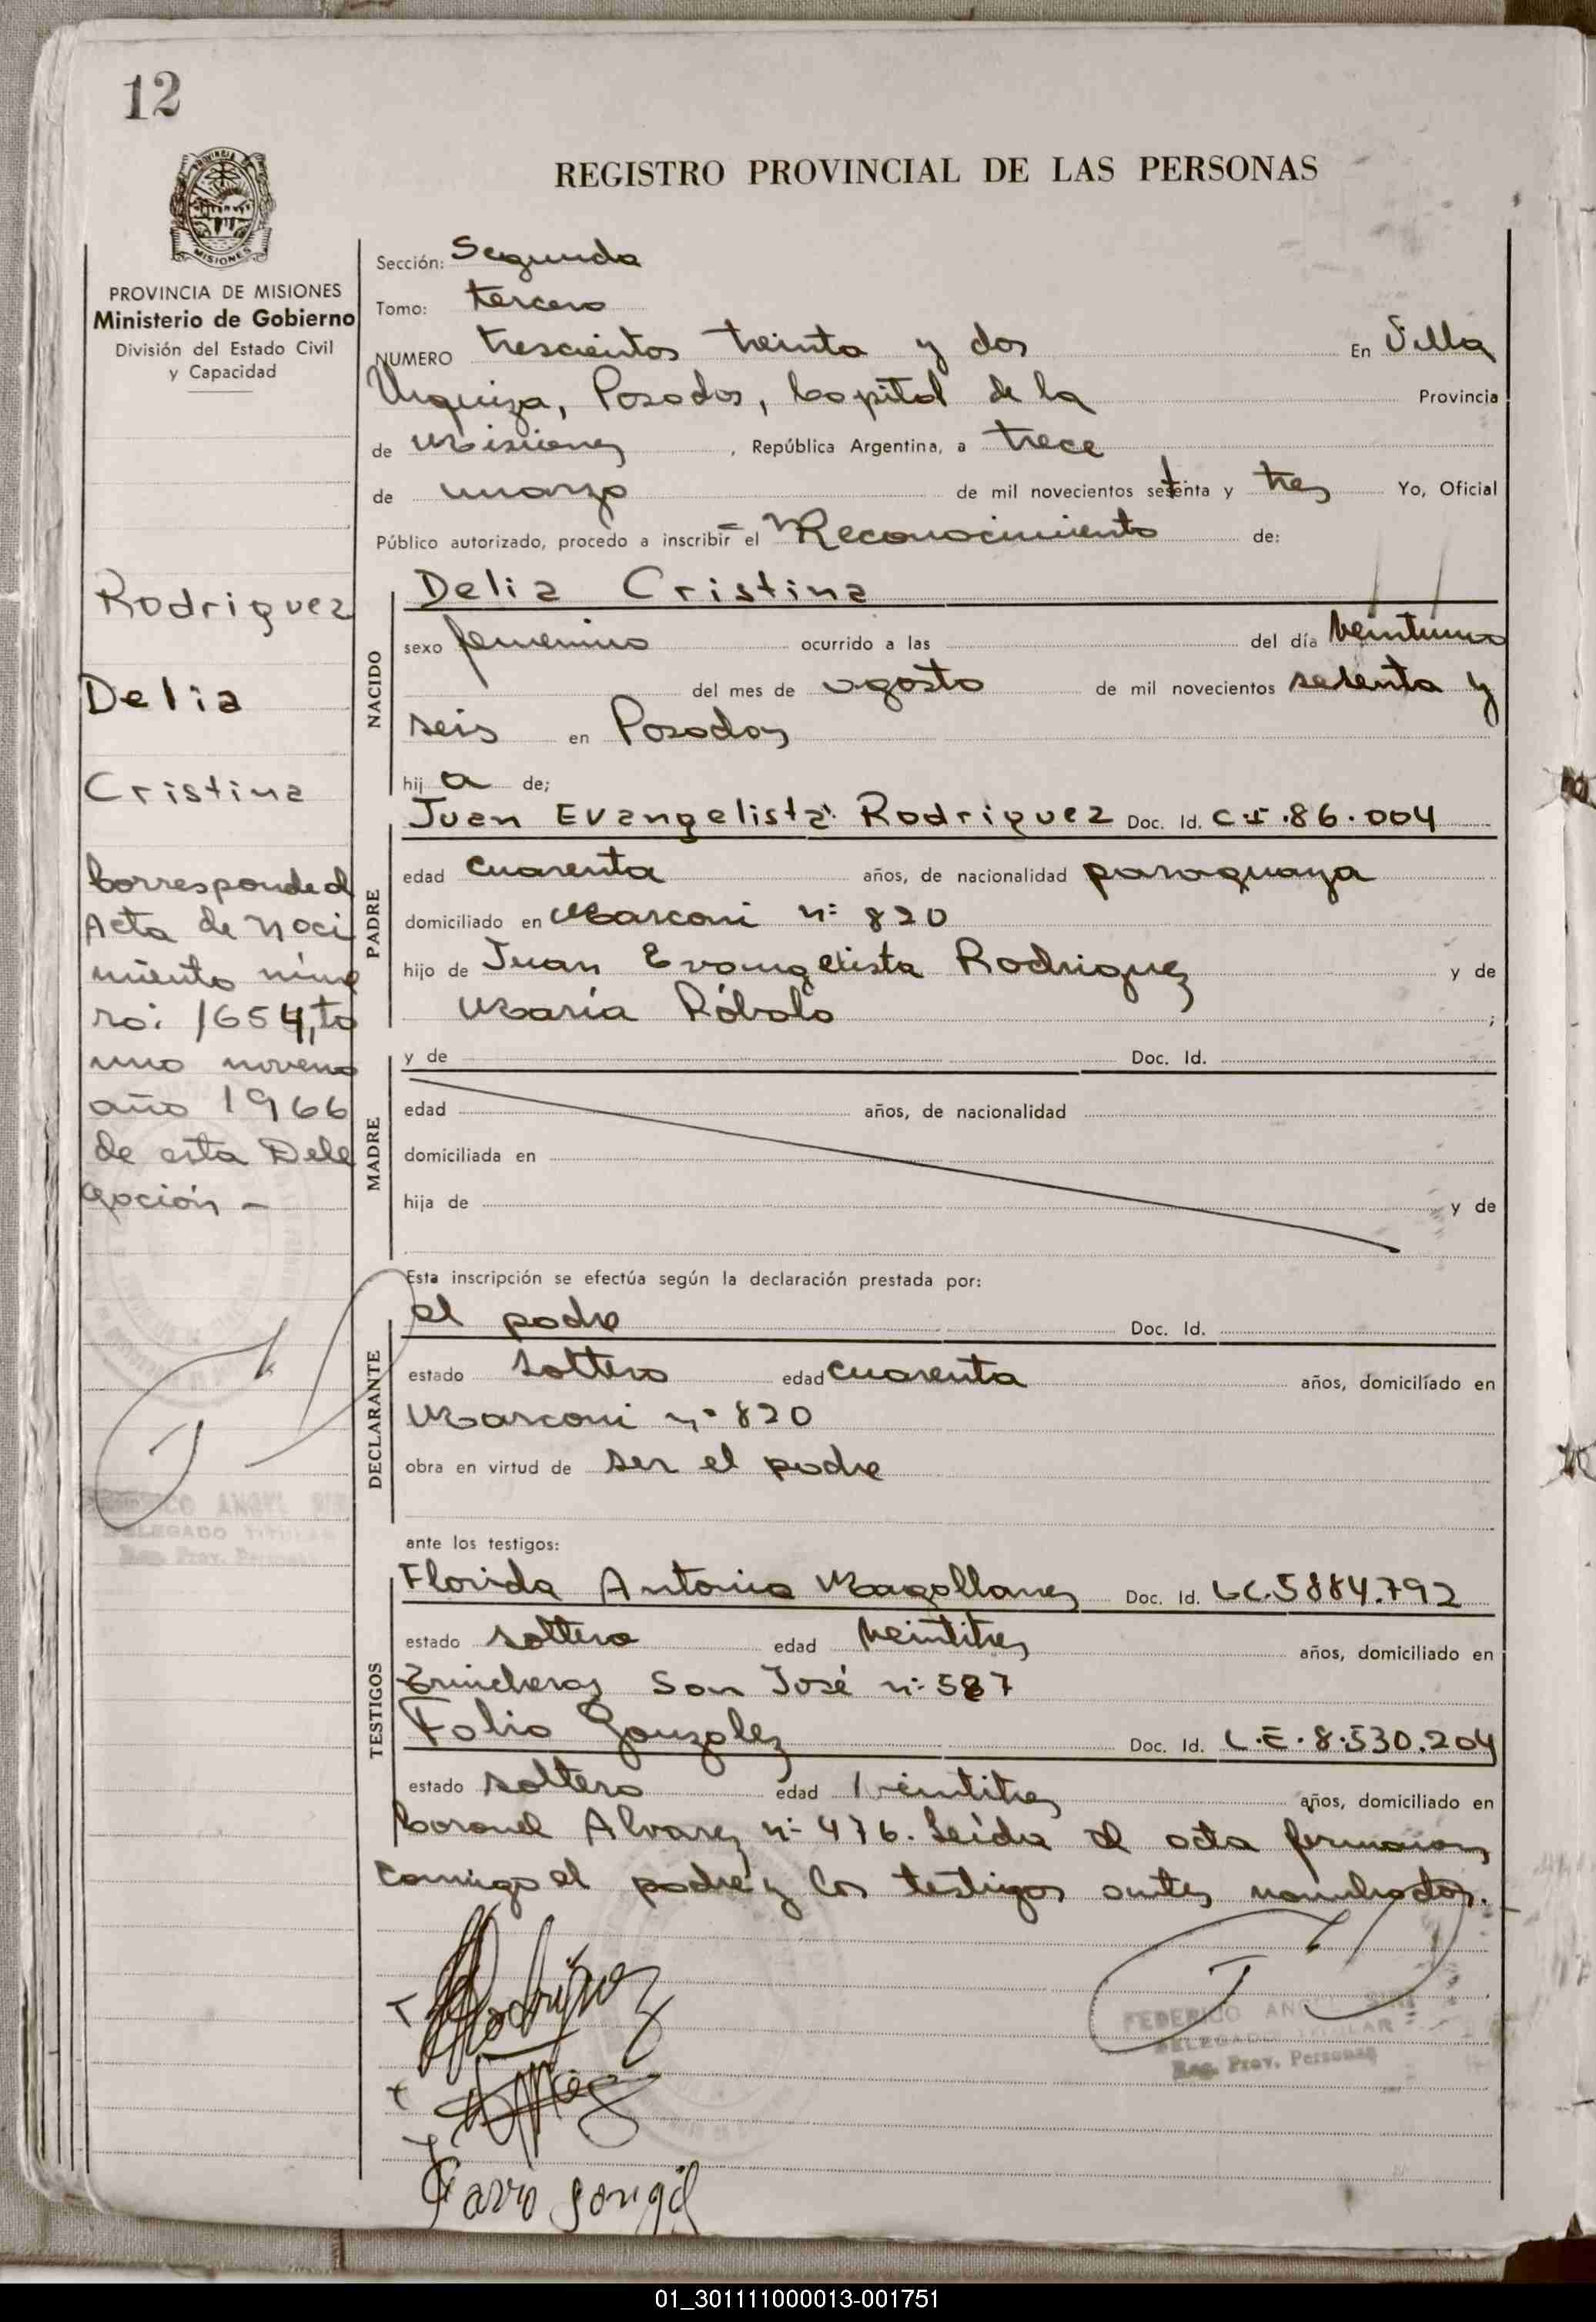 12
REGISTRO PROVINCIAL DE LAS PERSONAS
PROVINCIA DE MISIONES
Ministerio de Gobierno
División del Estado Civil
y Capacidad
Rodriguez
Delia
Cristina
Corresponde al
Acta de naci
miento núme
ro: 1654, to
mo noveno
año 1966
de esta Dele
gación -
DELEGADO TITULAR
Reg. Prov. Personas
Sección: Segunda
Tomo: tercero
NUMERO trescientos treinta y dos En Villa
Urquiza, Posadas, Capital de la Provincia
de Misiones, República Argentina, a trece
de marzo de mil novecientos setenta y tres Yo, Oficial
Público autorizado, procedo a inscribir el Reconocimiento de:
NACIDO
Delia Cristina
sexo femenino ocurrido a las del día veintiuno
del mes de agosto de mil novecientos sesenta y
seis en Posadas
hija de;
PADRE
Juan Evangelista Rodriguez Doc. Id. C.I.86.004
edad cuarenta años, de nacionalidad paraguaya
domiciliado en Marconi nº 820
hijo de Juan Evangelista Rodriguez y de
María Róbalo ;
MADRE
y de Doc. Id.
edad años, de nacionalidad
domiciliada en
hija de y de
Esta inscripción se efectúa según la declaración prestada por:
DECLARANTE
el padre Doc. Id.
estado soltero edad cuarenta años, domiciliado en
Marconi nº 820
obra en virtud de ser el padre
ante los testigos:
TESTIGOS
Florida Antonia Magallanes Doc. Id. LC.5884.792
estado soltera edad veintitres años, domiciliado en
Trincheras San José nº 587
Fabio Gonzalez Doc. Id. L.E.8.530.204
estado soltero edad veintitres años, domiciliado en
Coronel Alvarez nº 476. Leída el acta firmaron
conmigo el padre y los testigos antes nombrados.
Rodriguez
FEDERICO ANGEL
DELEGADO TITULAR
Reg. Prov. Personas
01_301111000013-001751